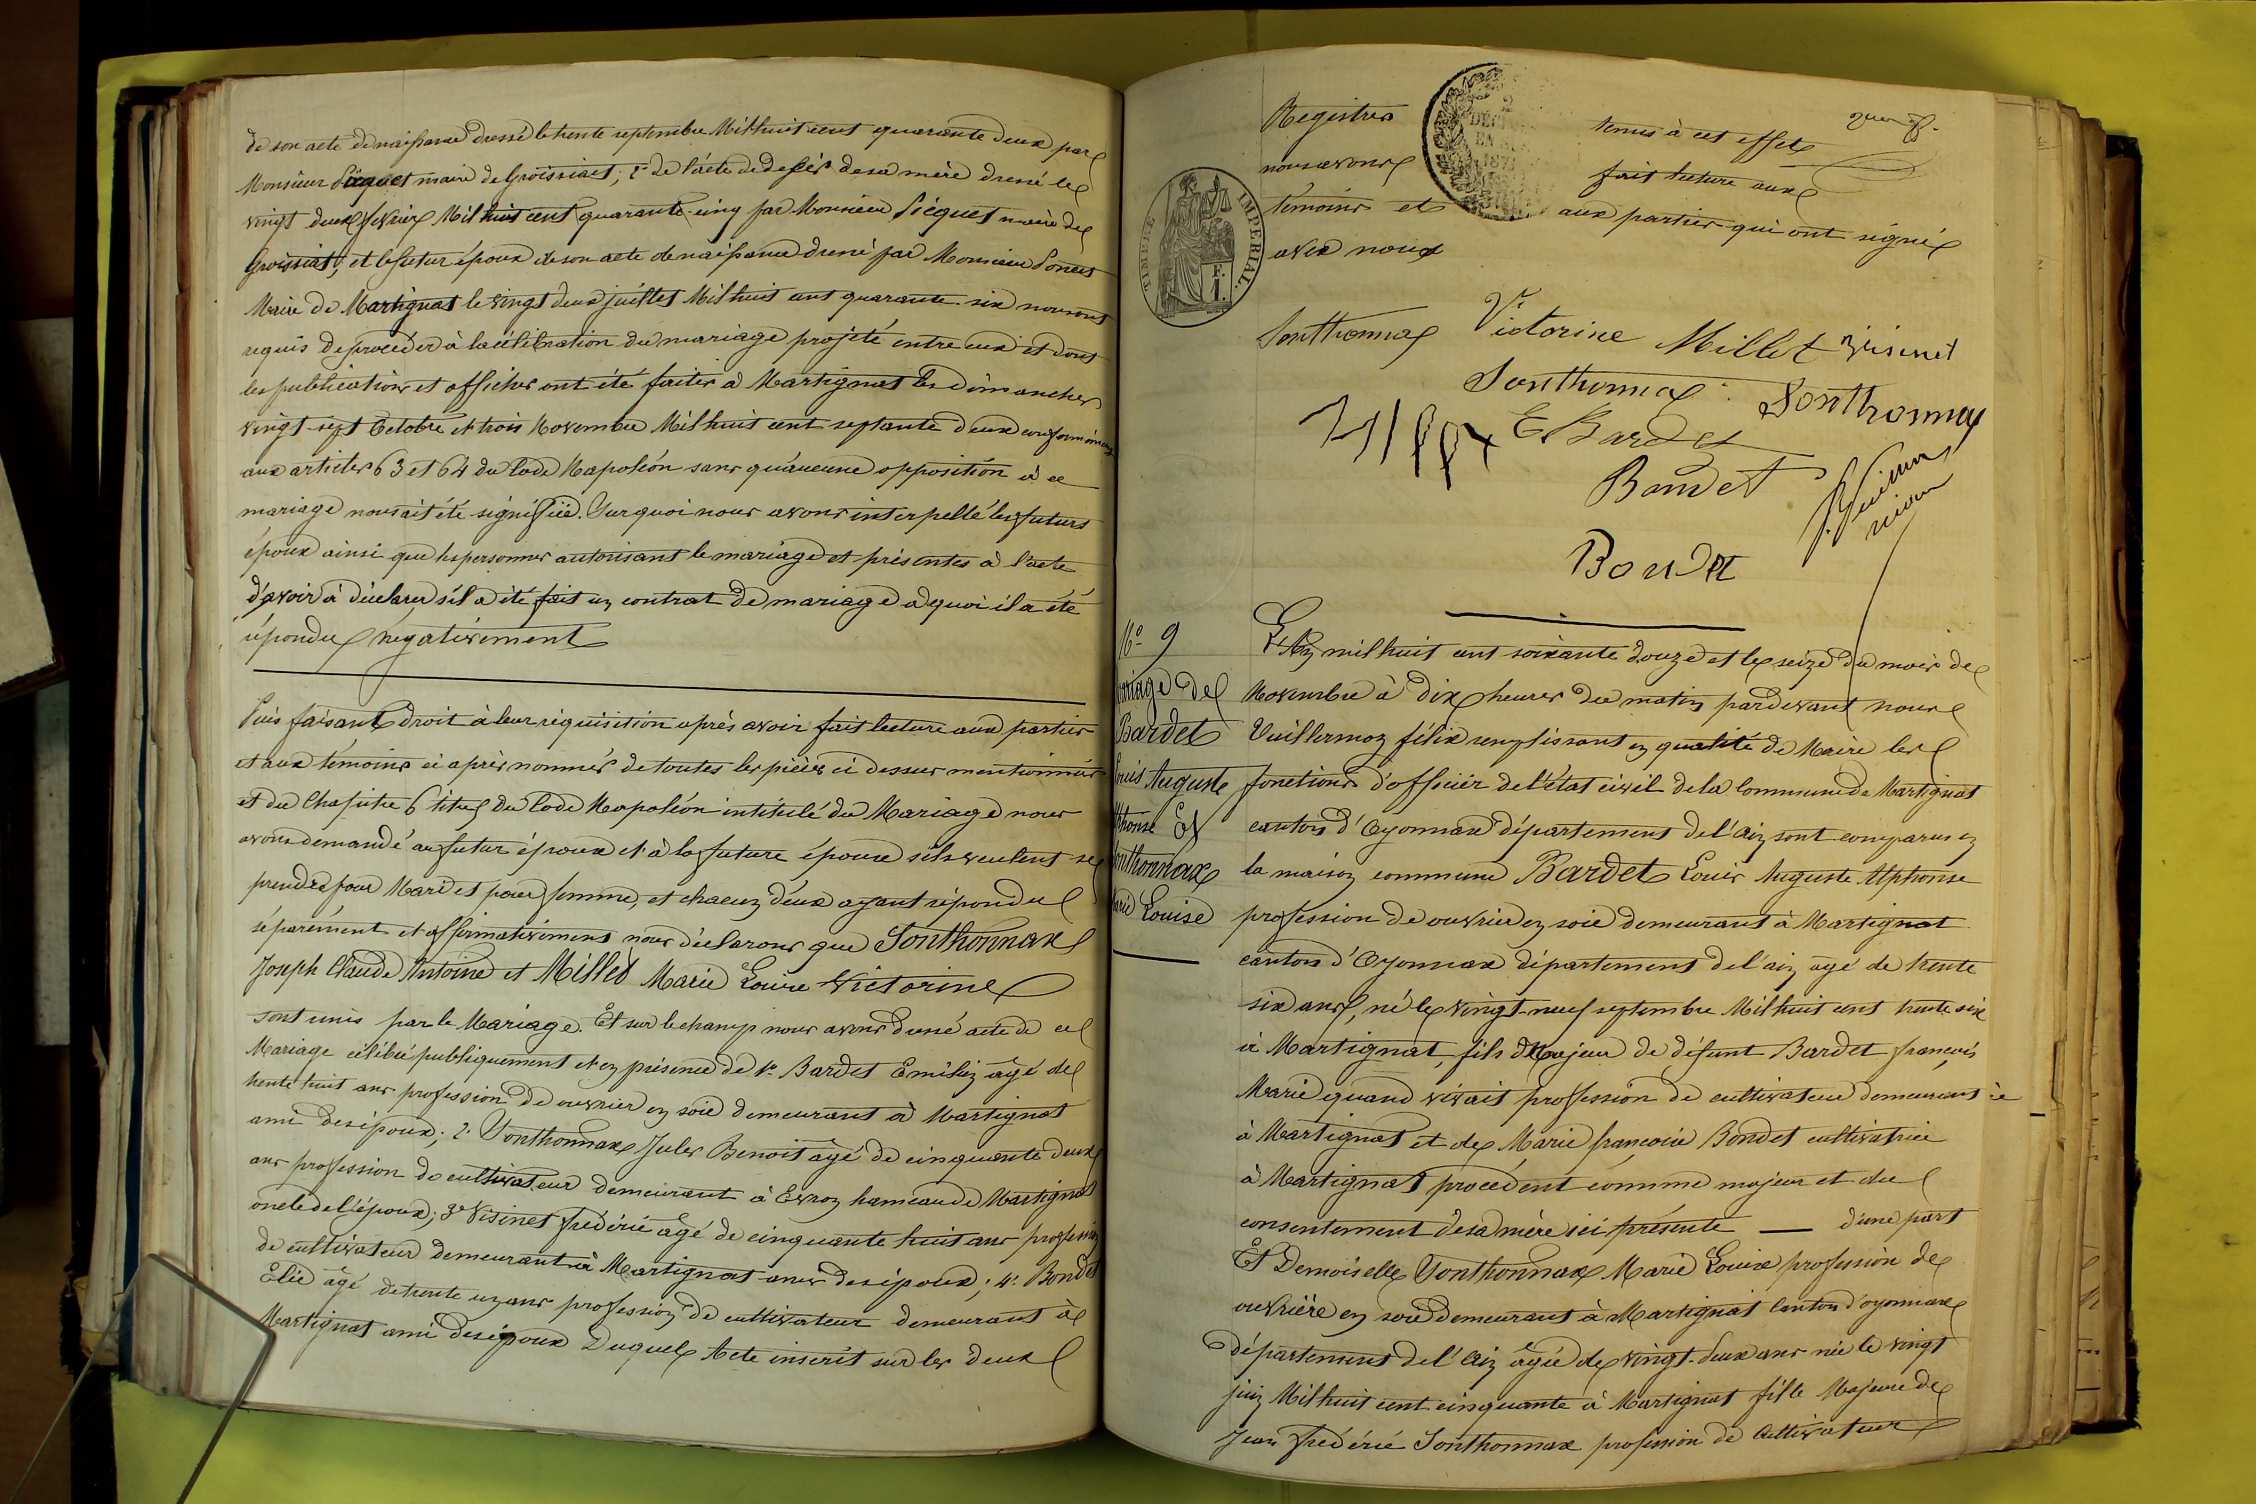 de son acte de naissance dressé le trente septembre Mil huit cent quarante deux par
Monsieur Picquet maire de Groissiat; 2° de l'acte de décès de sa mère dressé le
vingt deux fevrier Mil huit cent quarante-cinq par Monsieur Picquet maire de
Groissiat; et le futur époux de son acte de naissance dressé par Monsieur
Maire de Martignat le vingt deux juillet Mil huit cent quarante-six nous ont
requis de procéder à la célébration du mariage projeté entre eux et dont
les publications et affiches ont été faites à Martignat les dimanches
vingt-sept Octobre et trois Novembre Mil huit cent septante deux conformément
aux articles 63 et 64 du Code Napoléon sans qu'aucune opposition à ce
mariage nous ait été signifiée. Sur quoi nous avons interpellé les futurs
époux ainsi que les personnes autorisant le mariage et présentes à l'acte
d'avoir à déclarer s'il a été fait un contrat de mariage a quoi il a été
répondu négativement
Puis faisant droit à leur réquisition après avoir fait lecture aux parties
et aux témoins ci après nommés de toutes les pièces ci dessus mentionnées
et du Chapitre 6 titre du Code Napoléon intitulé du Mariage nous
avons demandé au futur époux et à la future épouse s'ils veulent se
prendre pour Mari et pour femme, et chacun d'eux ayant répondu
séparément et affirmativement nous déclarons que Sonthonnax
Joseph Claude Antoine et Millet Marie Louise Victorine
sont unis par le Mariage. Et sur le champ nous avons dressé acte de ce
Mariage célébré publiquement et en présence de 1° Bardet Emilien âgé de
trente huit ans profession de ouvrier en soie demeurant à Martignat
ami des époux; 2° Sonthonnax Jules Benoit âgé de cinquante deux
ans profession de cultivateur demeurant à Evron hameau de Martignat
oncle de l'époux; 3° Visinet frédéric âgé de cinquante huit ans profession
de cultivateur demeurant à Martignat amis des époux; 4° Bondet
Elie âgé de trente un ans profession de cultivateur demeurant à
Martignat ami des époux Duquel Acte inscrit sur les deux
Registres tenus à cet effet
nous avons fait lecture aux
témoins et aux parties qui ont signé
avec nous
TIMBRE IMPERIAL
Sonthonnax Victorine Millet Visinet
Sonthonnax Sonthonnax
E Bardet
Bondet
Bondet
N° 9
Mariage de
Bardet
Louis Auguste
Alphonse Et
Sonthonnax
Marie Louise
L'An mil huit cent soixante douze et le seize du mois de
Novembre à dix heures du matin pardevant nous
Vuillermoz félix remplissant en qualité de Maire les
fonctions d'officier de l'état civil de la Commune de Martignat
canton d'Oyonnax département de l'Ain sont comparus en
la maison commune Bardet Louis Auguste Alphonse
profession de ouvrier en soie demeurant à Martignat
canton d'Oyonnax département de l'ain agé de trente
six ans, né le vingt-neuf septembre Mil huit cent trente six
à Martignat, fils Majeur de défunt Bardet françois
Marie quand vivait profession de cultivateur demeurant
à Martignat et de Marie françoise Bondet cultivatrice
à Martignat procédent comme majeur et du
consentement de sa mère ici présente — d'une part
Et Demoiselle Sonthonnax Marie Louise profession de
ouvrière en soie demeurant à Martignat Canton d'oyonnax
département de l'Ain âgée de vingt-deux ans née le vingt
juin Mil huit cent cinquante à Martignat fille Majeure de
Jean frédéric Sonthonnax profession de Cultivateur